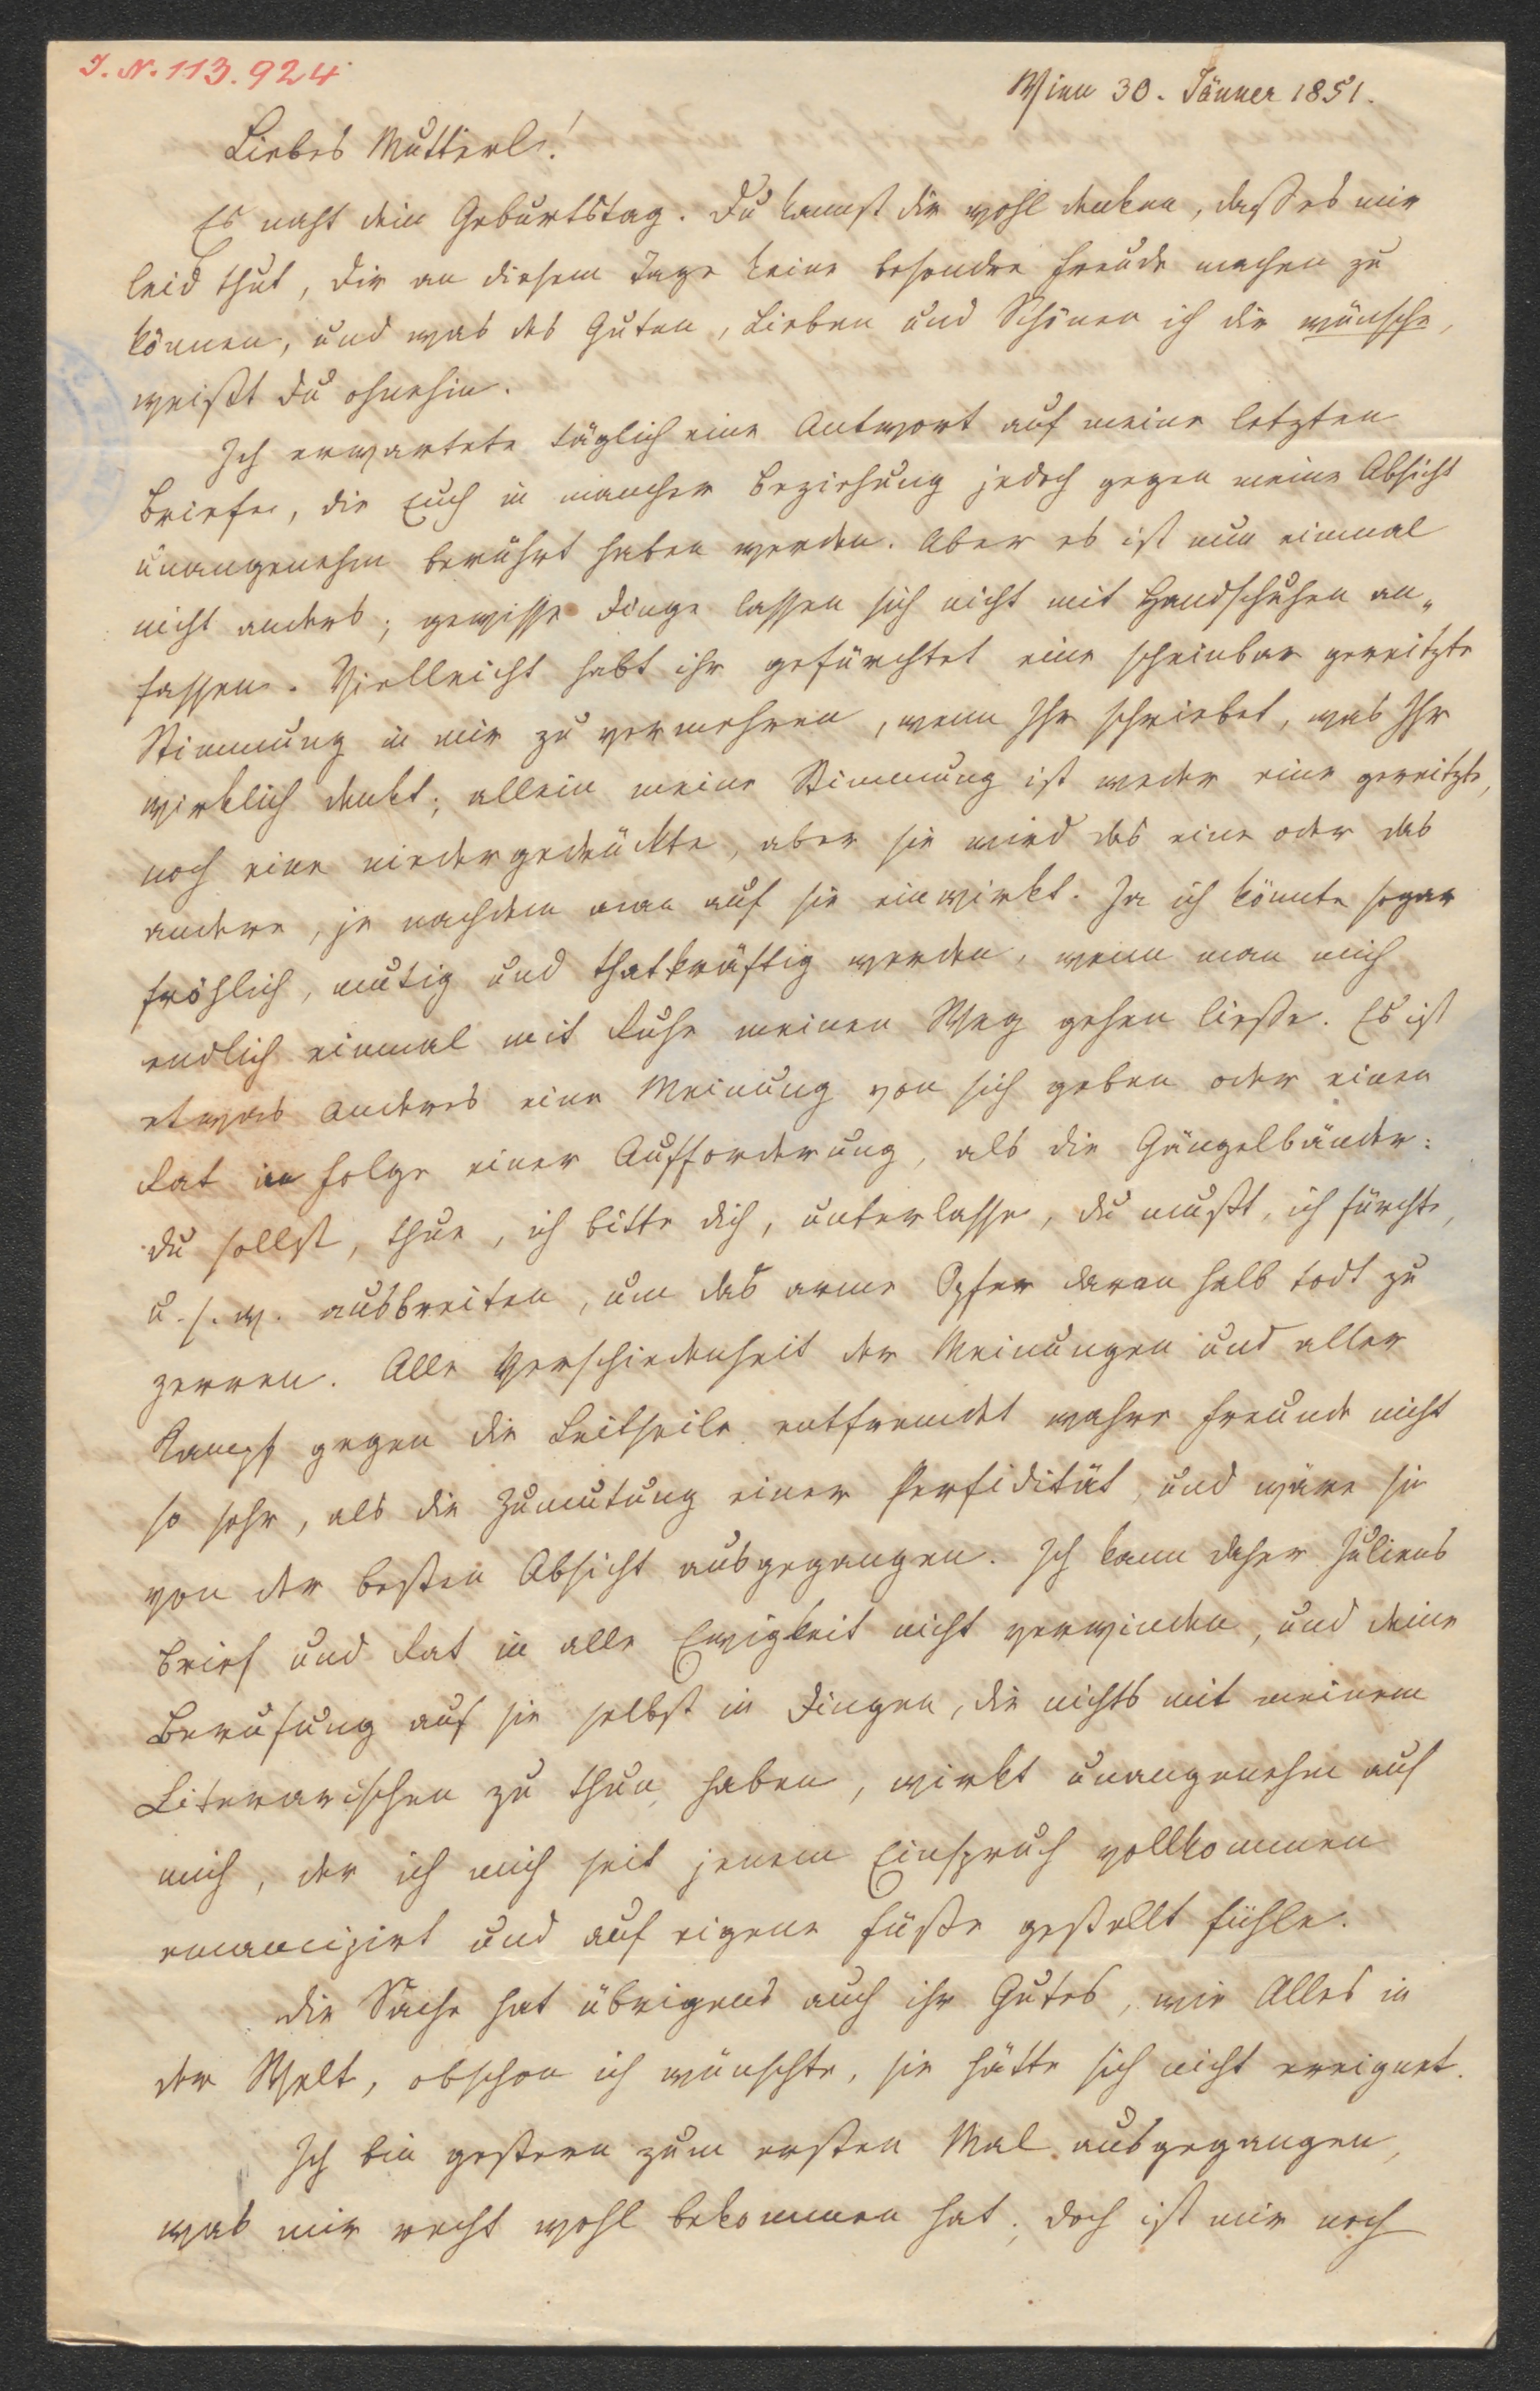 I. N. 113.924
Wien 30. Jänner 1851.
Liebes Mutterl!
Es naht dein Geburtstag. Du kannst dir wohl denken, daß es mir
leid thut, dir an diesem Tage keine besondre Freude machen zu
können, und was des Guten, Lieben und Schönen ich dir wünsche,
weißt du ohnehin.
Ich erwartete täglich eine Antwort auf meine letzten
Briefe, die Euch in mancher Beziehung jedoch gegen meine Absicht
unangenehm berührt haben werden. Aber es ist nun einmal
nicht anders; gewisse Dinge lassen sich nicht mit Handschuhen an„
fassen. Vielleicht habt ihr gefürchtet eine scheinbar gereitzte
Stimmung in mir zu vermehren, wenn Ihr schriebet, was Ihr
wirklich denkt; allein meine Stimmung ist weder eine gereitzte,
noch eine niedergedrückte, aber sie wird das eine oder das
andere, je nachdem man auf sie einwirkt. Ja ich könnte sogar
fröhlich, mutig und thatkräftig werden, wenn man mich
endlich einmal mit Ruhe meinen Weg gehen ließe. Es ist
etwas Anderes eine Meinung von sich geben oder einen
Rat in Folge einer Aufforderung, als die Gängelbänder:
du sollst, thue, ich bitte dich, unterlasse, du mußt, ich fürchte,
u. s. w. ausbreiten, um das arme Opfer daran halb todt zu
zerren. Alle Verschiedenheit der Meinungen und aller
Kampf gegen die Leitseile entfremdet wahre Freunde nicht
so sehr, als die Zumutung einer Perfidität, und wäre sie
von der besten Absicht ausgegangen. Ich kann daher Juliens
Brief und Rat in alle Ewigkeit nicht verwinden, und deine
Berufung auf sie selbst in Dingen, die nichts mit meinem
Literarischen zu thun haben, wirkt unangenehm auf
mich, der ich mich seit jenem Einspruch vollkommen
emancipirt und auf eigene Füße gestellt fühle.
Die Sache hat übrigens auch ihr Gutes, wie Alles in
der Welt, obschon ich wünschte, sie hätte sich nicht ereignet.
Ich bin gestern zum ersten Mal ausgegangen,
was mir recht wohl bekommen hat; doch ist mir noch